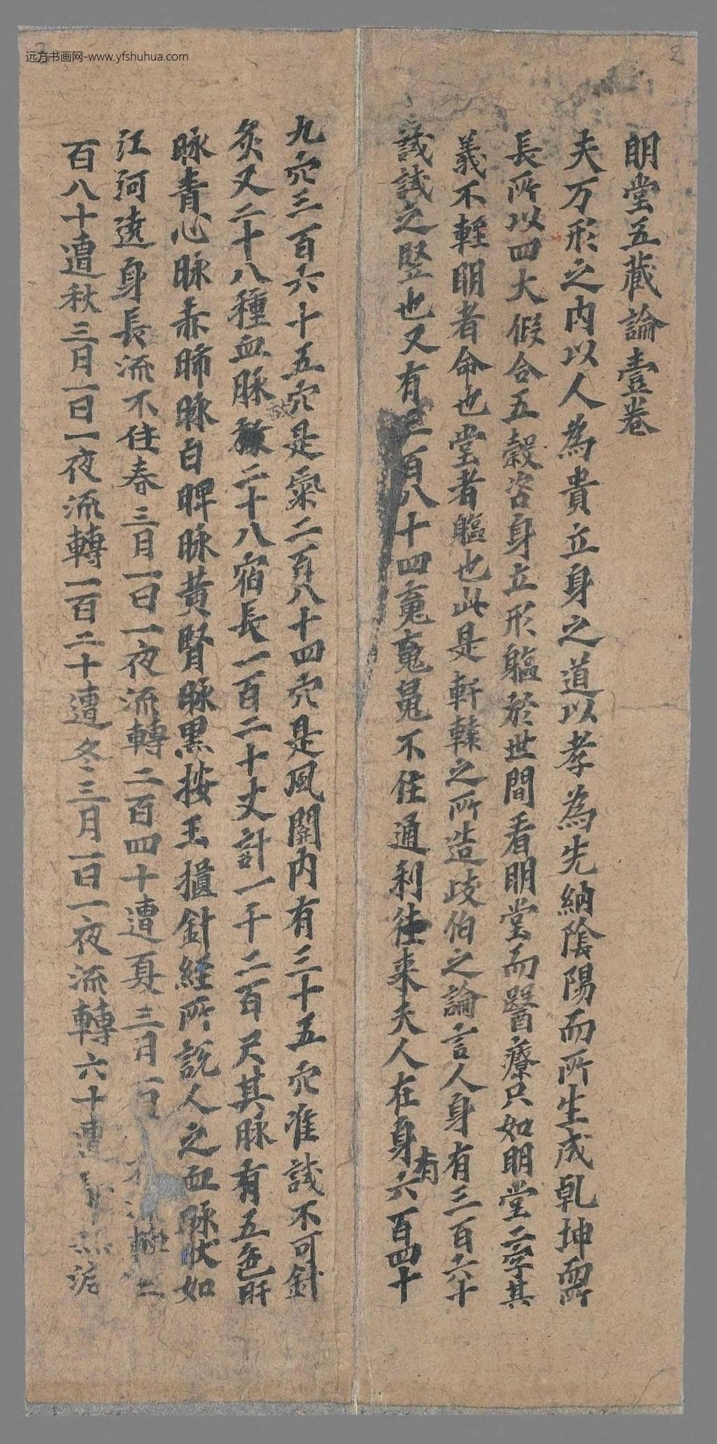 远方书画网-www.yfshuhua.com
2
明堂五蔵論壹卷
夫万形之内以人為貴立身之道以孝為先納陰陽而所生成乹坤而所
長所以四大假合五穀咨身立形軀於世間看明堂而醫療只如明堂二字其
義不輕明者命也堂者軀也此是軒轅之所造歧伯之論言人身有三百六十
諴諴之竪也又有百八十四不住通利往来夫人在身有六百四十
九穴三百六十五穴是氣二百八十四穴是風關内有三十五穴准諴不可針
灸又二十八種血脉二十八宿長一百二十丈計一千二百尺其脉有五色肝
脉青心脉赤肺脉白脾脉黄腎脉黑按玉匱針経所說人之血脉状如
江河遶身長流不住春三月一日一夜流轉二百四十遭夏三月一日
百八十遭秋三月一日一夜流轉一百二十遭冬三月一日一夜流轉六十遭